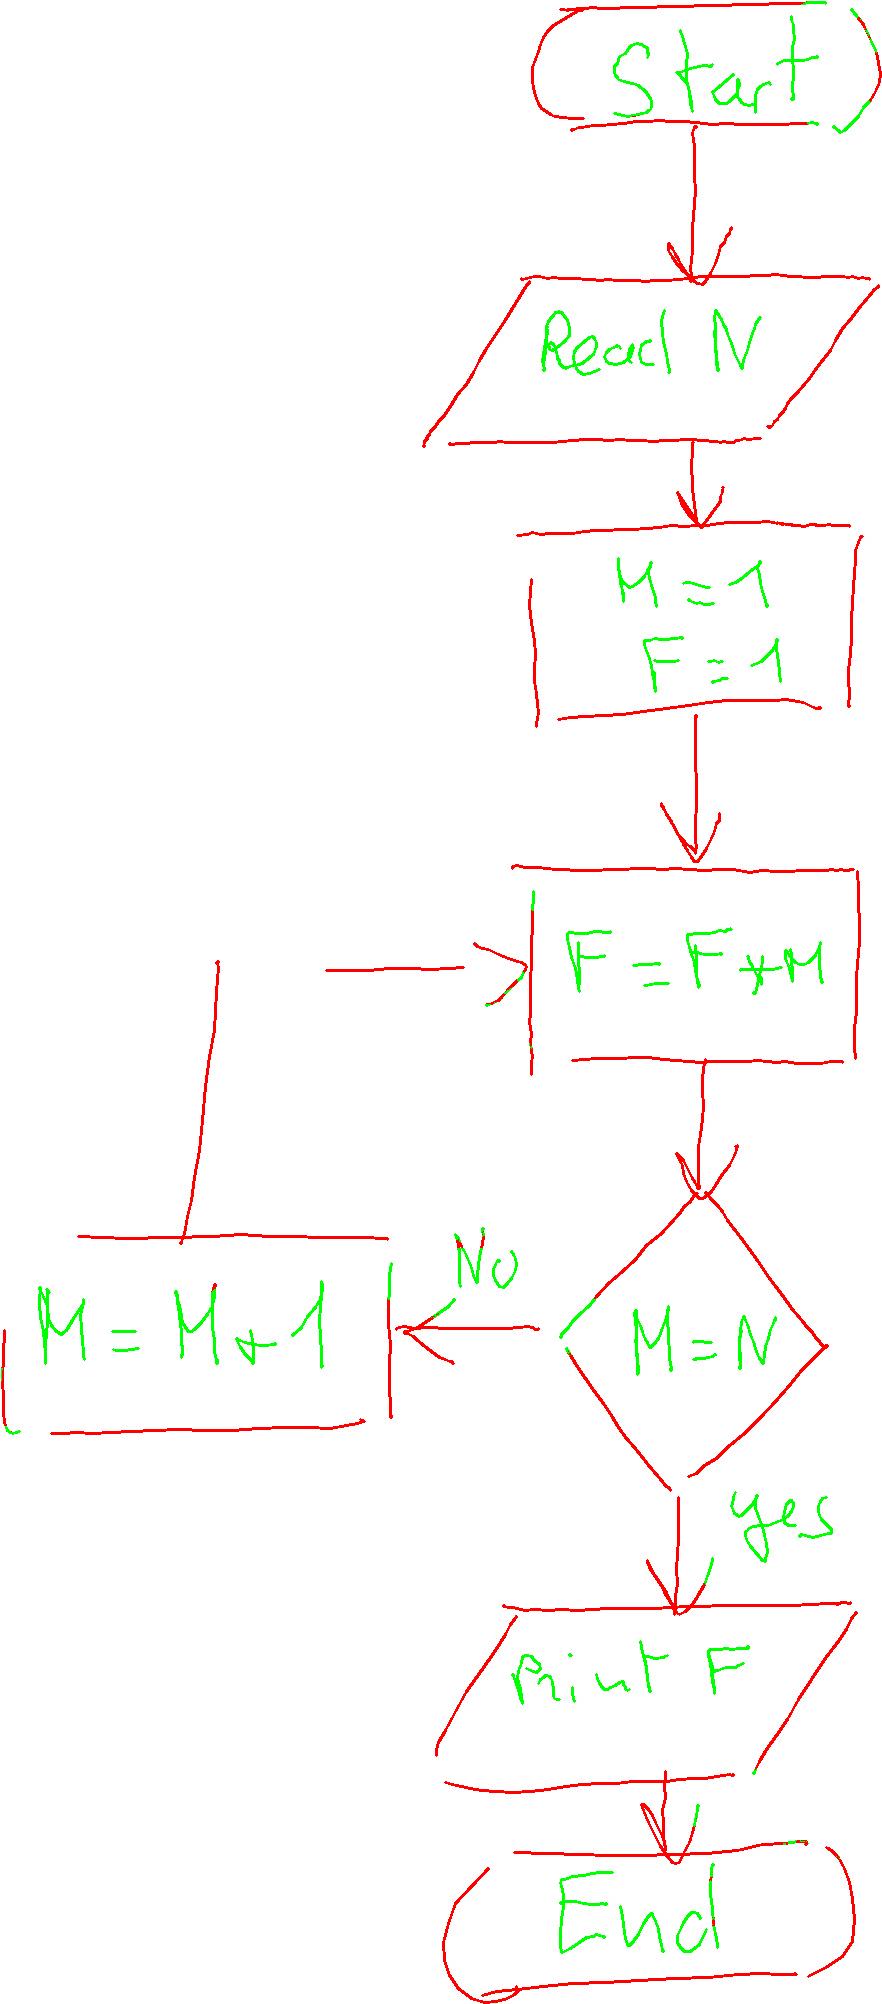 Start
Read N
M = 1
F = 1
F = F * M
No
M = M + 1
M = N
yes
Print F
End